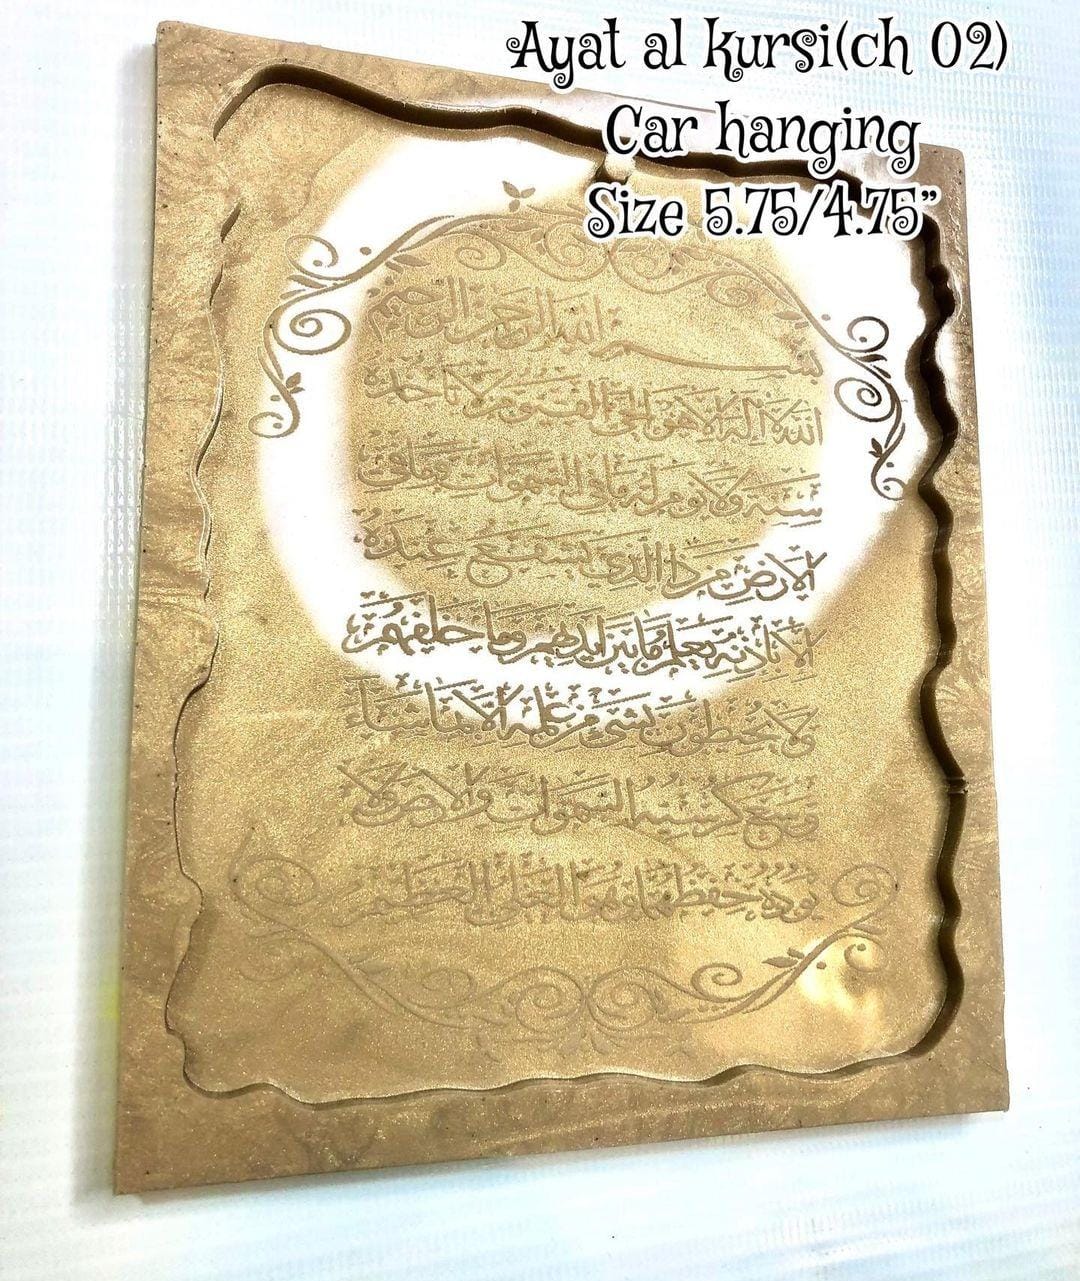 Ayat al kursi(ch 02)
Car hanging
Size 5.75/4.75”
بسم الله الرحمن الرحيم
الله لا إله إلا هو الحي القيوم لا تأخذه
سنة ولا نوم له ما في السموات وما في
الارض من ذا الذي يشفع عنده
الا باذنه يعلم ما بين ايديهم وما خلفهم
ولا يحيطون بشئ من علمه الا بما شاء
وسع كرسيه السموات والارض ولا
يؤده حفظهما وهو العلي العظيم